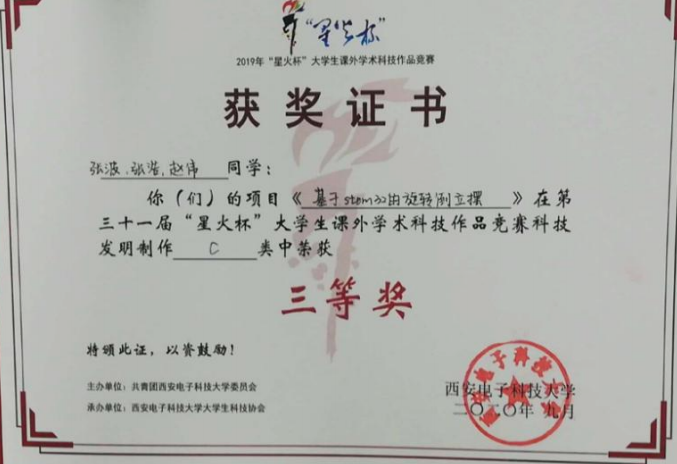 “星火杯”
2019年“星火杯”大学生课外学术科技作品竞赛
获奖证书
张波、张浩、赵伟 同学：
你（们）的项目《基于stm32的旋转倒立摆》在第
三十一届“星火杯”大学生课外学术科技作品竞赛科技
发明制作 C 类中荣获
三等奖
特颁此证，以资鼓励！
主办单位：共青团西安电子科技大学委员会
承办单位：西安电子科技大学大学生科技协会
西安电子科技大学
二〇二〇年 九月